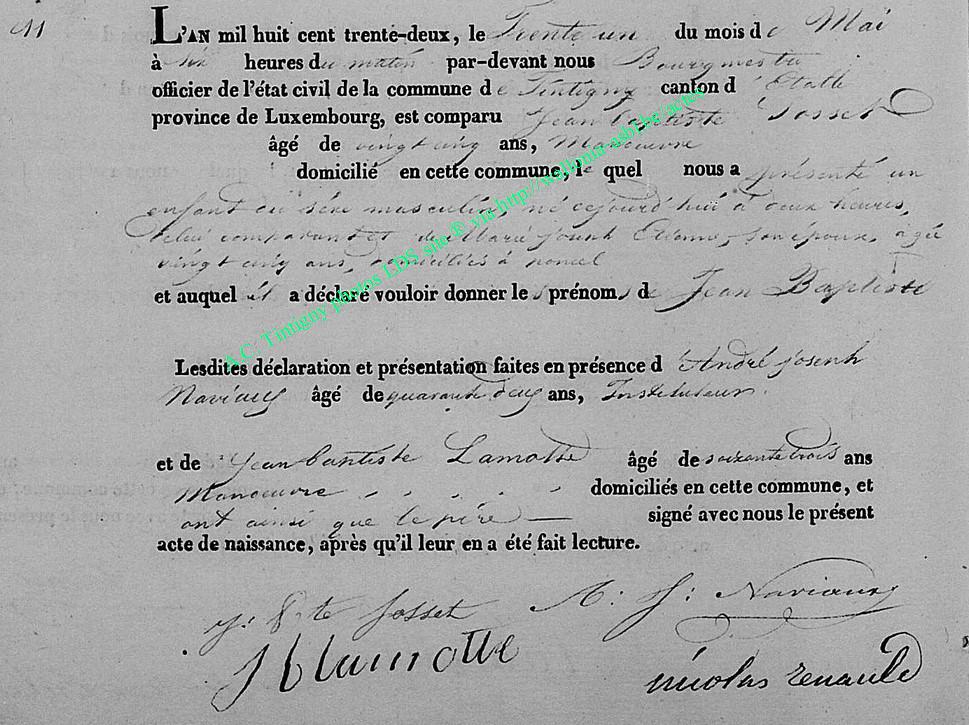 11
L'AN mil huit cent trente-deux, le Trente un du mois de Mai
à six heures du matin par-devant nous Bourgmestre
officier de l'état civil de la commune de Tintigny canton d'Etalle
province de Luxembourg, est comparu Jean baptiste Josset
âgé de vingt cinq ans, Manoeuvre
domicilié en cette commune, le quel nous a présenté un
enfant du sexe masculin, né cejourd'hui à deux heures,
de lui comparant et de Marie Joseph son épouse, agée
vingt cinq ans, domiciliés à poncel
et auquel il a déclaré vouloir donner les prénoms de Jean Baptiste
Lesdites déclaration et présentation faites en présence d'André joseph
Naviaux âgé de quarante deux ans, Instituteur
et de Jean baptiste Lamotte âgé de soixante trois ans
Manoeuvre domiciliés en cette commune, et
ont ainsi que le père signé avec nous le présent
acte de naissance, après qu'il leur en a été fait lecture.
j: Bte Josset A: J: Naviaux
J B lamotte
nicolas renauld
A.C. Tintigny photos LDS site ® via http://wallonia-asbl.be/actes